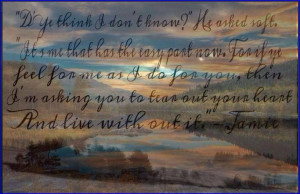 "D' ye think I don't know?" He asked soft.
"It's me that has the easy part now. For if ye
feel for me as I do for you, then
I'm asking you to tear out your heart
And live with out it." ~ Jamie